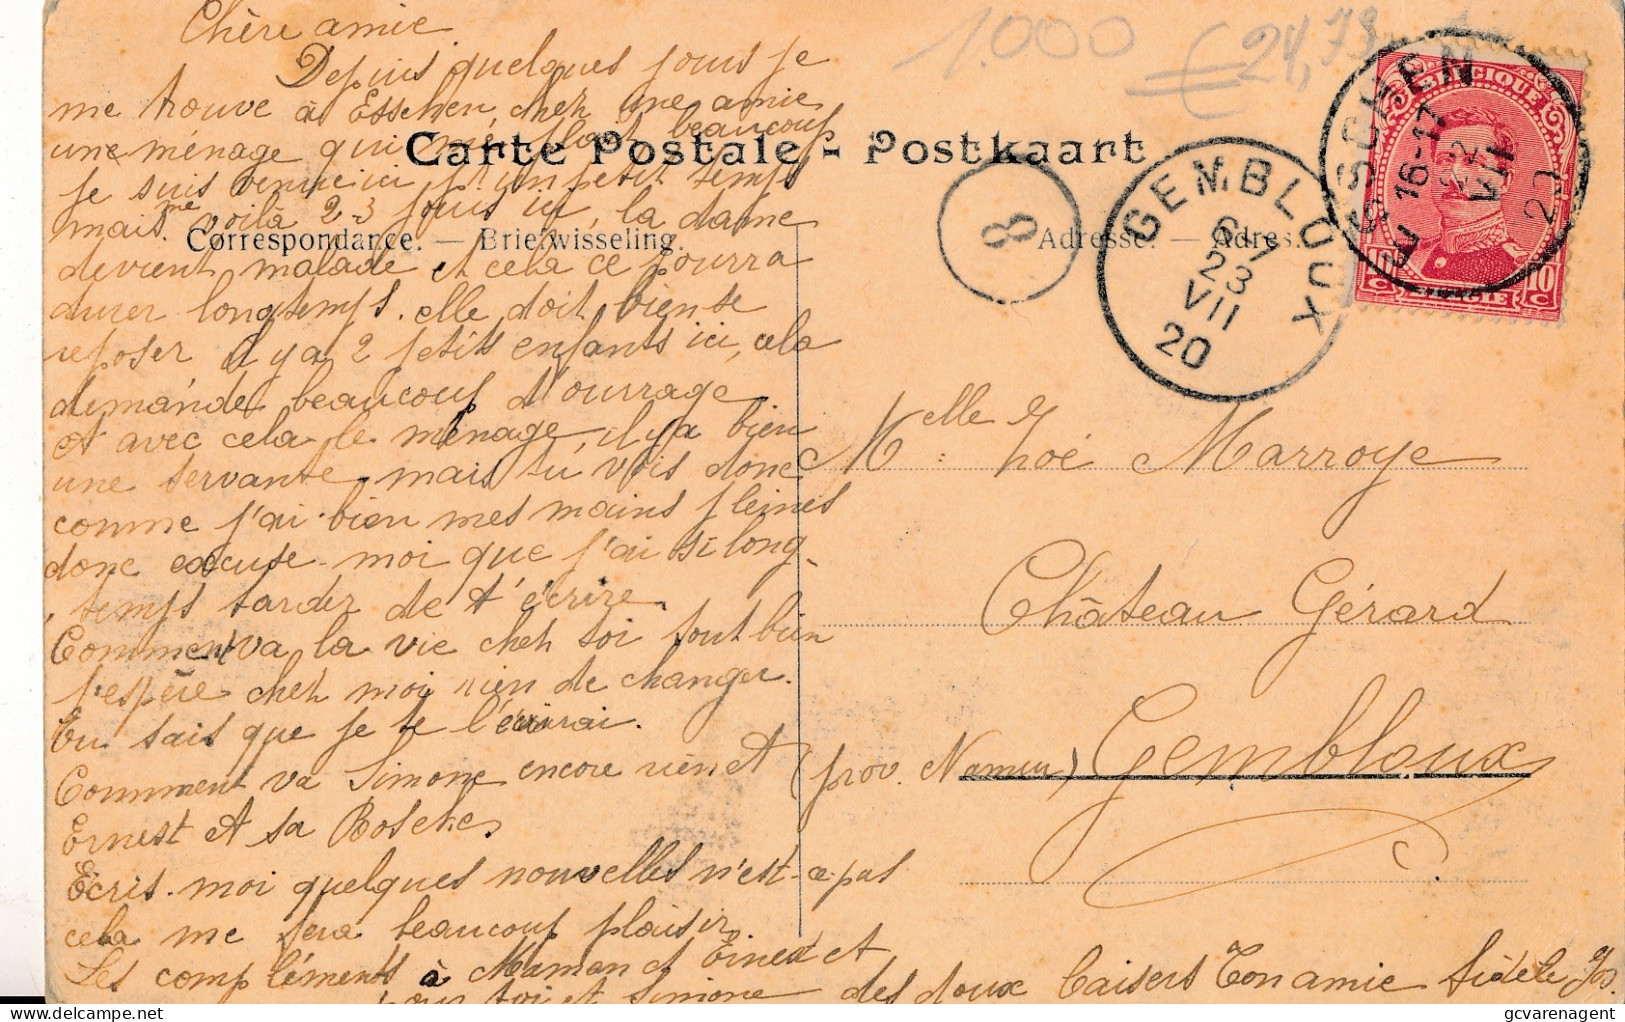 Chère amie
Depuis quelques jours je
me trouve à Esschen, chez une amie
une ménage qui me plait beaucoup
je suis venue ici pr un petit temps
mais voilà 2-3 jours ici, la dame
devient malade et cela ce pourra
durer longtemps. elle doit bien se
reposer il y a 2 petits enfants ici, cela
demande beaucoup d'ouvrage
et avec cela le ménage, il y a bien
une servante mais tu vois donc
comme j'ai bien mes mains pleines
donc excuse-moi que j'ai si long-
temps tarder de t'écrire.
Comment va la vie chez toi tout bien
j'espère chez moi rien de changer.
Tu sais que je te l'écrirai.
Comment va Simone encore rien et
Ernest et sa
Ecris-moi quelques nouvelles n'est-ce-pas
cela me fera beaucoup plaisir
Les compléments à Maman et Ernest et
pour toi et Simone des doux baisers Ton amie fidèle Jos.
Carte Postale - Postkaart
Correspondance. — Briefwisseling.
Adresse. — Adres.
1.000
€ 24,79
8
GEMBLOUX
6-7
23
VII
20
ESSCHEN
16-17
22
VII
20
BELGIQUE
BELGIE
10 C
10 C
Melle: Zoé Marroye
Château Gérard
(prov. Namur) Gembloux
gcvarenagent